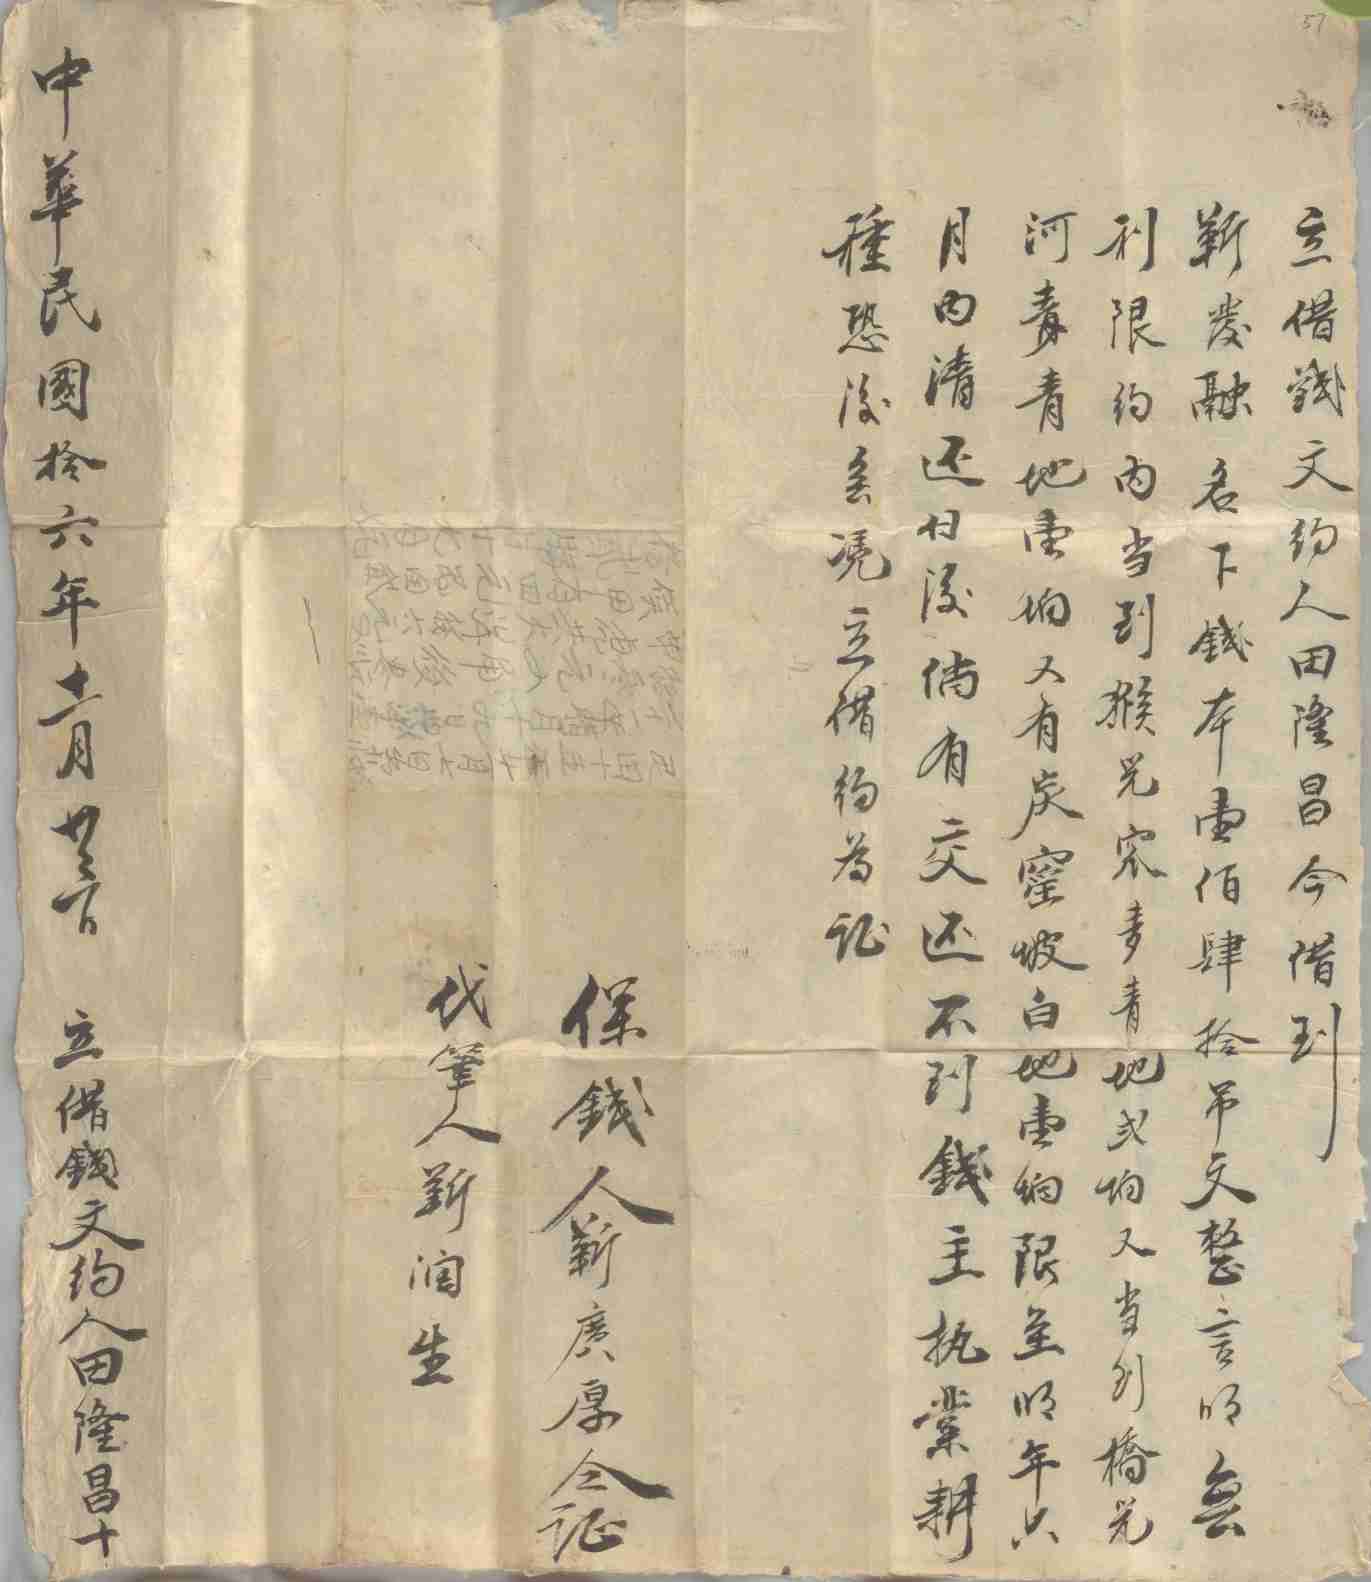 57
立借錢文约人田隆昌今借到
靳發融名下錢本壹佰肆拾吊文整言明無
利限约内当到猴兒窊青地弍垧又当到橋兒
河青地壹垧又有炭窰坡白地壹垧限至明年六
月内清还日後倘有交还不到錢主执業耕
種恐後無凭立借约為证
保錢人靳廣厚仝证
代筆人靳润生
中華民國拾六年十二月廿 日 立借錢文约人田隆昌十